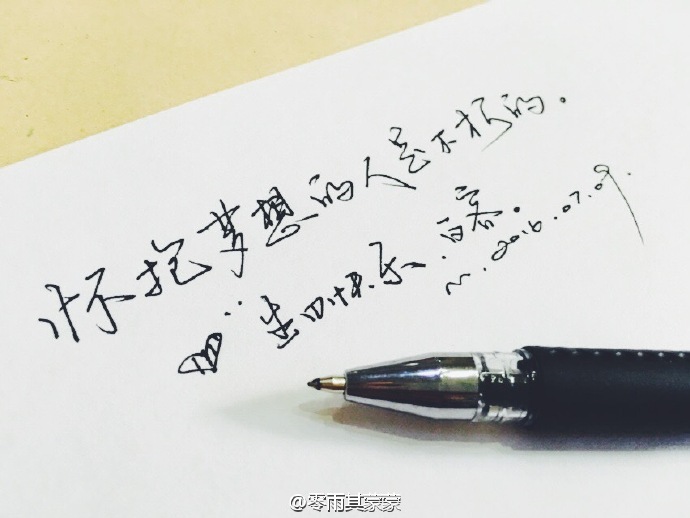 怀抱梦想的人是不朽的。
生日快乐.白客。
M.2016.07.09.
@零雨其蒙蒙